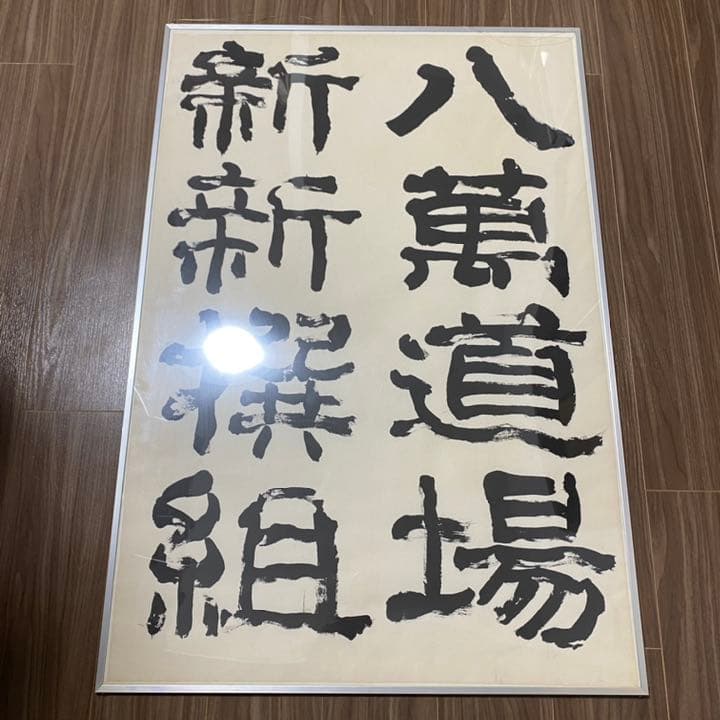 八萬道場
新新撰組